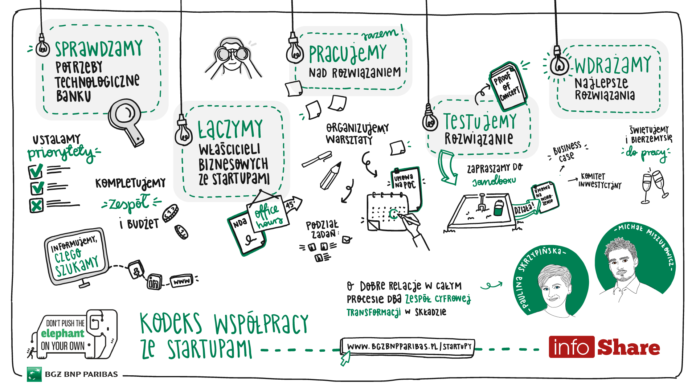 SPRAWDZAMY
POTRZEBY
TECHNOLOGICZNE
BANKU
USTALAMY
priorytety
KOMPLETUJEMY
ZESPÓŁ
I BUDŻET
INFORMUJEMY,
CZEGO
SZUKAMY
WWW
ŁĄCZYMY
WŁAŚCICIELI
BIZNESOWYCH
ZE STARTUPAMI
NDA
office
hours
45'
razem!
PRACUJEMY
NAD ROZWIĄZANIEM
ORGANIZUJEMY
WARSZTATY
UMOWA
NA POC
PODZIAŁ
ZADAŃ:
PROOF
OF
CONCEPT
TESTUJEMY
ROZWIĄZANIE
ZAPRASZAMY DO
sandboxu
DZIAŁA!
WDRAŻAMY
NAJLEPSZE
ROZWIĄZANIA
BUSINESS
CASE
KOMITET
INWESTYCYJNY
ŚWIĘTUJEMY
I BIERZEMY SIĘ
do pracy
O DOBRE RELACJE W CAŁYM
PROCESIE DBA ZESPÓŁ CYFROWEJ
TRANSFORMACJI W SKŁADZIE
PAULINA SKRZYPIŃSKA
MICHAŁ MISZUŁOWICZ
DON'T PUSH THE
elephant
ON YOUR OWN
KODEKS WSPÓŁPRACY
ZE STARTUPAMI
WWW.BGZBNPPARIBAS.PL/STARTUPY
info Share
BGŻ BNP PARIBAS